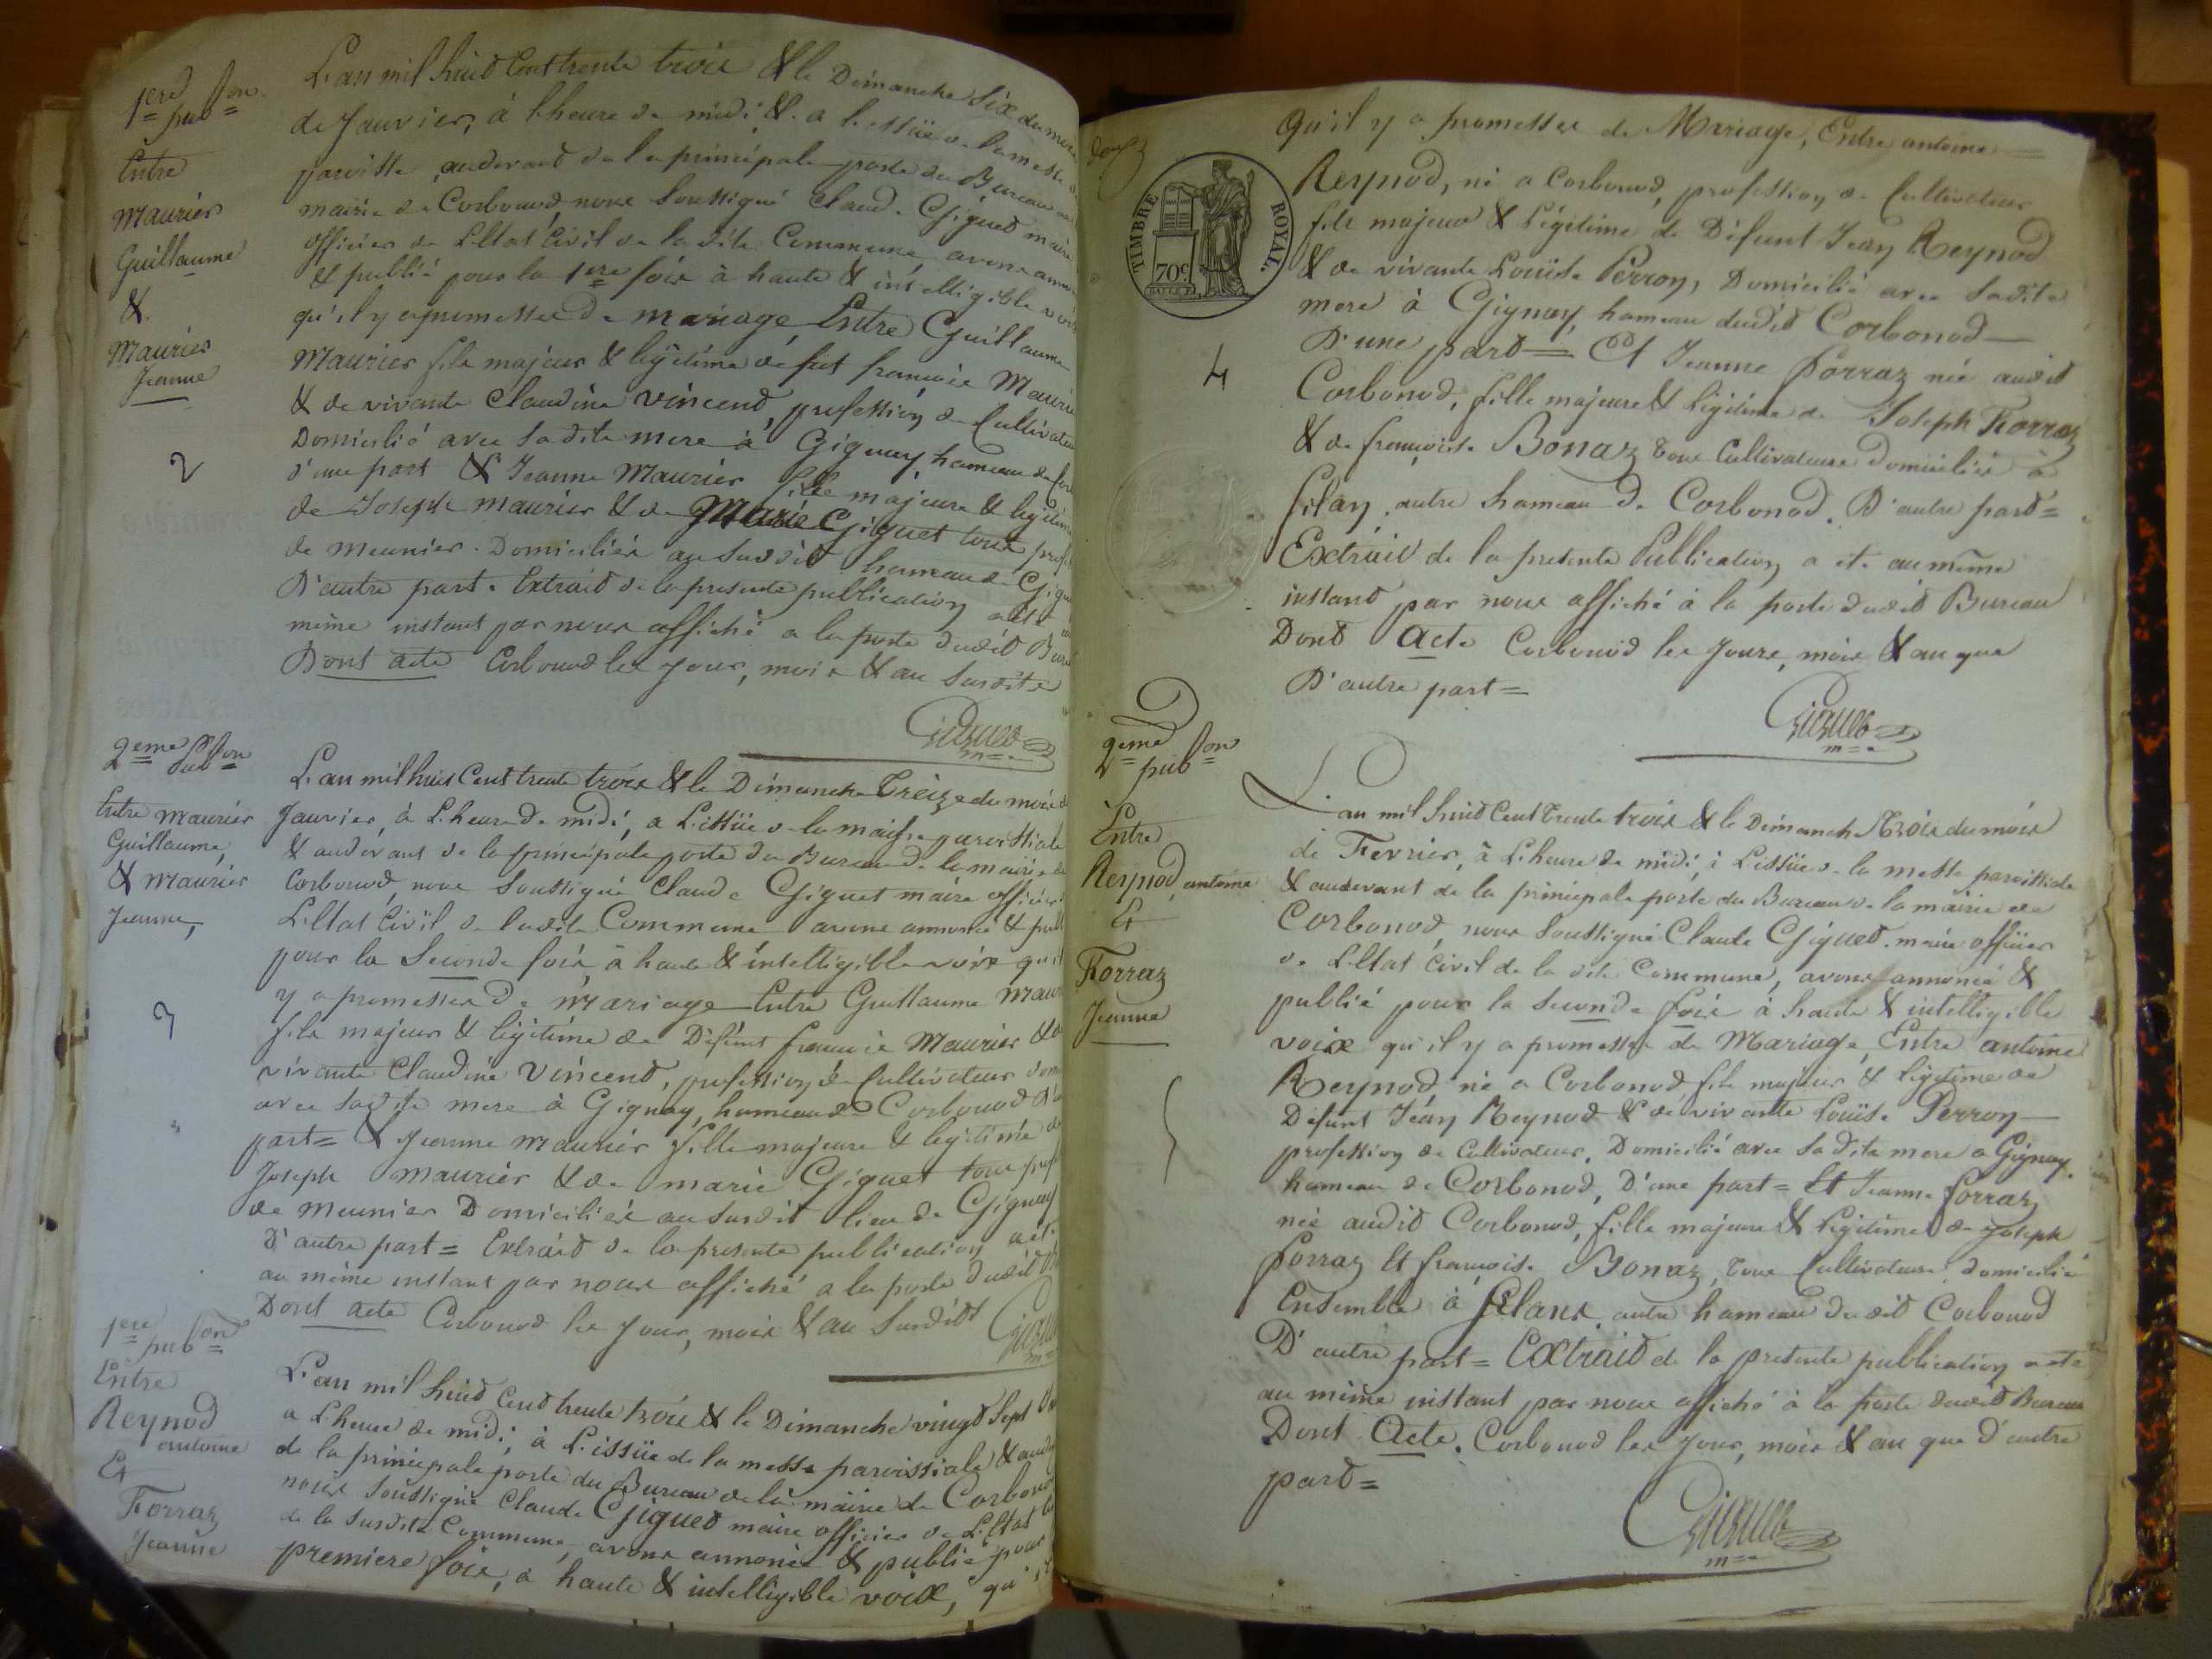 1ere pub^on
Entre
Maurier
Guillaume
&
Maurier
Jeanne
2
L'an mil huit Cent trente trois & le Dimanche Six du mois
de Janvier, à l'heure de midi, & a l'issüe de la messe
paroisse, audevant de la principale porte du Bureau
mairie de Corbonod nous Soussigné Claude Giguet maire
officier de L'Etat Civil de la dite Commune avons
& publié pour la 1ere fois à haute & intelligible voix
qu'il y a promesses de mariage Entre Guillaume
Maurier fils majeur & légitime de feû francois Maurier
& de vivante Claudine Vincend, profession de Cultivateur
Domicilié avec sadite mere à Gignay, hameau de
d'une part & Jeanne Maurier fille majeure & légitime
de Joseph maurier & de Marie Giguet tous
de meunier Domiciliés au Susdit hameau de
D'autre part. Extrait de la presente publication a été
même instant par nous affiché a la porte dudit
Dont acte Corbonod les Jour, mois & an Susdits
Giguet
m=e
2eme pub^on
Entre Maurier
Guillaume,
& Maurier
Jeanne,
3
L'an mil huit Cent trente trois & le Dimanche Treize du mois de
Janvier, à L'heure de midi, a L'issüe de la messe paroissiale
& audevant de la principale porte du Bureau de la mairie de
Corbonod, nous Soussigné Claude Giguet maire officier
L'Etat Civil de ladite Commune avons annoncé &
pour la Seconde fois, à haute & intelligible voix qu'il
y a promesses de Mariage Entre Guillaume
fils majeur & légitime de Défunt francois Maurier &
vivante Claudine Vincend, profession de Cultivateur
avec sadite mere à Gignay, hameau de Corbonod
part = & Jeanne Maurier fille majeure & légitime de
Joseph Maurier & de marie Giguet tous
de meunier Domiciliés au susdit lieu de Gignay
D'autre part = Extrait de la presente publication a été
au même instant par nous affiché a la porte dudit
Dont acte Corbonod les Jour, mois & an Susdits
m=e
1ere pub^on
Entre
Reynod
antoine
Et
Forraz
Jeanne
L'an mil huit Cent trente trois & le Dimanche vingt Sept
a L'heure de midi, à L'issüe de la messe paroissiale &
de la principale porte du Bureau de la mairie de Corbonod
nous Soussigné Claude Giguet maire officier de L'Etat
de la Susdite Commune, avons annoncé & publié pour
premiere fois, à haute & intelligible voix, qu'il
TIMBRE ROYAL.
70c
4
Qu'il y a promesses de Mariage, Entre antoine
Reynod, né a Corbonod, profession de Cultivateur
fils majeur & Légitime de Défunt Jean Reynod
& de vivante Louïse Perron, Domicilié avec Sadite
mere à Gignay, hameau dudit Corbonod
D'une part = Et Jeanne Forraz née audit
Corbonod, fille majeure & Légitime de Joseph Forraz
& de françoise Bonaz tous Cultivateurs domiciliés à
Silan, autre hameau de Corbonod, D'autre part =
Extrait de la presente Publication a été au même
instant par nous affiché à la porte dudit Bureau
Dont Acte Corbonod les Jours, mois & an que
D'autre part =
Giguet
m=e
2eme pub^on
Entre
Reynod, antoine
Et
Forraz
Jeanne
5
L'an mil huit Cent trente trois & le Dimanche Trois du mois
de Fevrier, à L'heure de midi, à L'issüe de la messe paroissiale
& audevant de la principale porte du Bureau de la mairie de
Corbonod nous Soussigné Claude Giguet maire officier
de L'Etat Civil de la dite Commune, avons annoncé &
publié pour la Seconde fois à haute & intelligible
voix qu'il y a promesses de Mariage, Entre antoine
Reynod né a Corbonod fils majeur & légitime de
Défunt Jean Reynod & de vivante Louïse Perron
profession de Cultivateur, Domicilié avec Sadite mere a Gignay,
hameau de Corbonod, D'une part = Et Jeanne Forraz
née audit Corbonod, fille majeure & Légitime de Joseph
Forraz Et françoise Bonaz, tous Cultivateurs, domiciliés
Ensemble à Silans, autre hameau dudit Corbonod
D'autre part = Extrait de la presente publication a été
au même instant par nous affiché à la porte dudit Bureau
Dont Acte. Corbonod les Jour, mois & an que D'autre
part =
Giguet
m=e